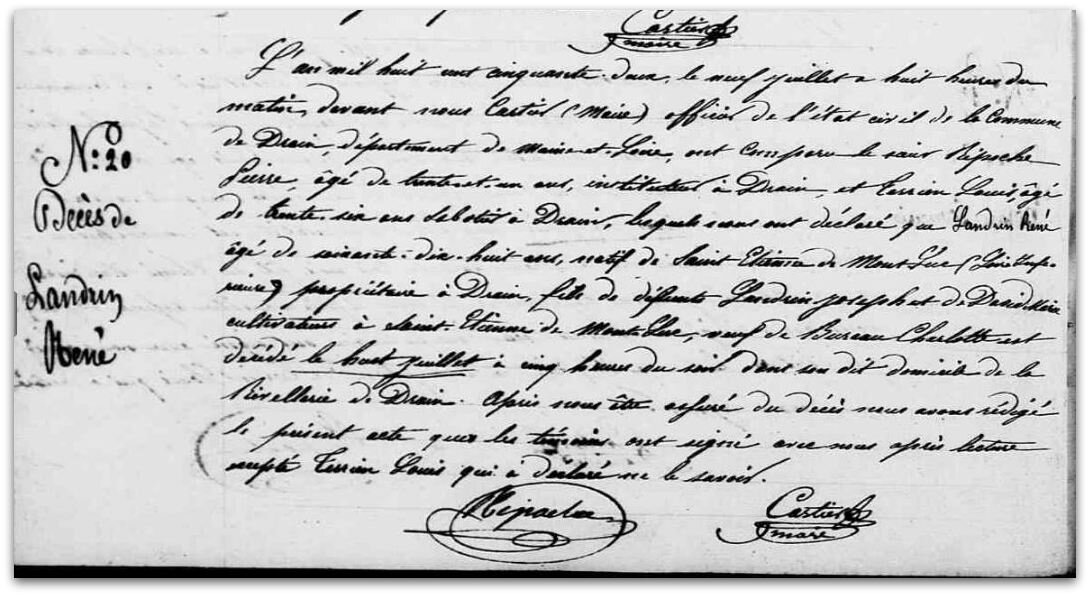 Castier
maire
L'an mil huit cent cinquante-deux, le neuf juillet à huit heures du
matin, devant nous Castier (Maire) officier de l'état civil de la Commune
de Drain, départment de Maine-et-Loire, ont comparu le sieur Ripoche
Pierre, âgé de trente-et-un ans, instituteur à Drain, et Terrien Louis, âgé
de trente-six ans sabotier à Drain, lesquels nous ont déclaré que Landrin René
âgé de soixante-dix-huit ans, natif de Saint Etienne de Mont Luc (Loire Infé-
rieure) propriétaire à Drain, fils de défunts Landrin Joseph et de David Marie
cultivateurs à Saint-Etienne de Mont-Luc, veuf de Bureau Charlotte est
décédé le huit juillet à cinq heures du soir dans son dit domicile de la
Rivellerie de Drain. Après nous être assuré du décès nous avons rédigé
le présent acte que les témoins ont signé avec nous après lecture
excepté Terrien Louis qui a déclaré ne le savoir.
N: 20
Décès de
Landrin
René
Ripoche
Castier
maire